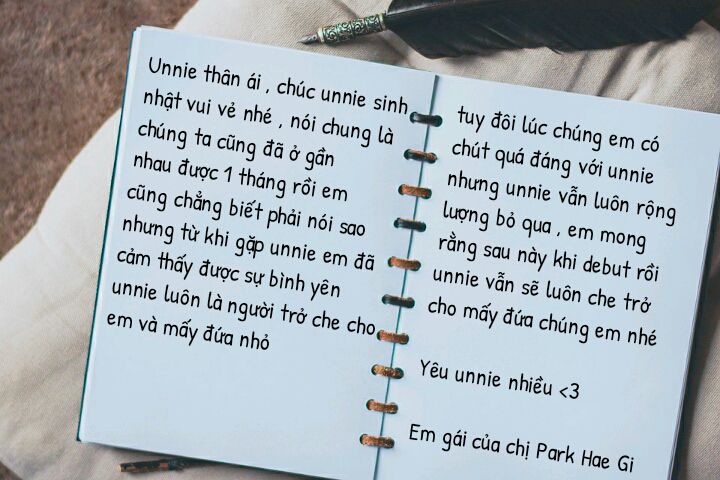 Unnie thân ái , chúc unnie sinh
nhật vui vẻ nhé , nói chung là
chúng ta cũng đã ở gần
nhau được 1 tháng rồi em
cũng chẳng biết phải nói sao
nhưng từ khi gặp unnie em đã
cảm thấy được sự bình yên
unnie luôn là người trở che cho
em và mấy đứa nhỏ
tuy đôi lúc chúng em có
chút quá đáng với unnie
nhưng unnie vẫn luôn rộng
lượng bỏ qua , em mong
rằng sau này khi debut rồi
unnie vẫn sẽ luôn che trở
cho mấy đứa chúng em nhé
Yêu unnie nhiều <3
Em gái của chị Park Hae Gi